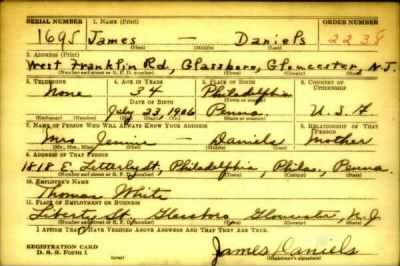 SERIAL NUMBER 1. NAME (Print) ORDER NUMBER
1695 James — Daniels 2238
(First) (Middle) (Last)
2. ADDRESS (Print)
West Franklin Rd., Glassboro, Gloucester, N.J.
(Number and street or R. F. D. number) (Town) (County) (State)
3. TELEPHONE 4. AGE IN YEARS 5. PLACE OF BIRTH 6. COUNTRY OF CITIZENSHIP
None 34 Philadelphia
DATE OF BIRTH (Town or county)
July 23, 1906 Penna. U.S.A
(Exchange) (Number) (Mo.) (Day) (Yr.) (State or country)
7. NAME OF PERSON WHO WILL ALWAYS KNOW YOUR ADDRESS 8. RELATIONSHIP OF THAT PERSON
Mrs Jennie — Daniels Mother
(Mr., Mrs., Miss) (First) (Middle) (Last)
9. ADDRESS OF THAT PERSON
1818 St, Philadelphia, Phila., Penna.
(Number and street or R. F. D. number) (Town) (County) (State)
10. EMPLOYER'S NAME
Thomas White
11. PLACE OF EMPLOYMENT OR BUSINESS
Liberty St. Glassboro Gloucester, N.J
(Number and street or R. F. D. number) (Town) (County) (State)
I AFFIRM THAT I HAVE VERIFIED ABOVE ANSWERS AND THAT THEY ARE TRUE.
REGISTRATION CARD
D. S. S. Form 1 James Daniels
(Registrant's signature)